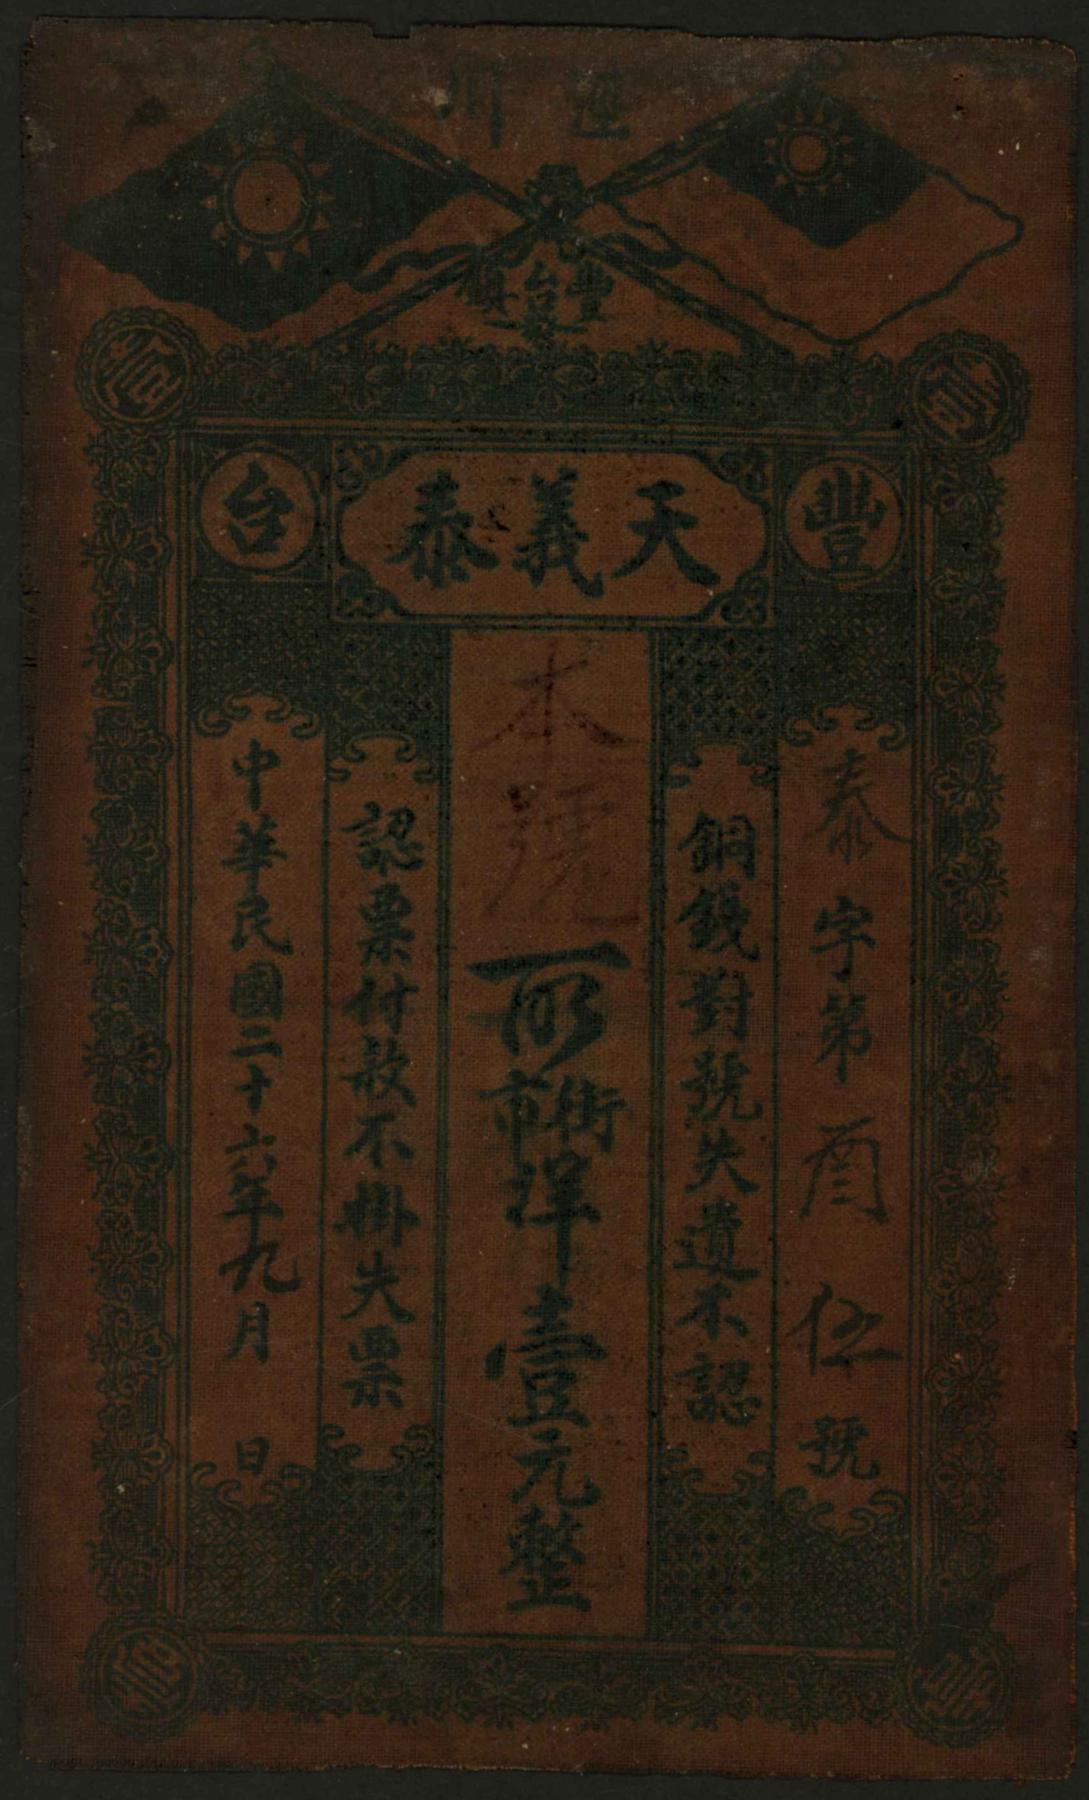 豐台鎮
壹
壹
豐
天義泰
台
泰字第酉伍號
銅錢對號失遺不認
本號
取街市洋壹元整
認票付款不掛失票
中華民國二十六年九月 日
壹
壹